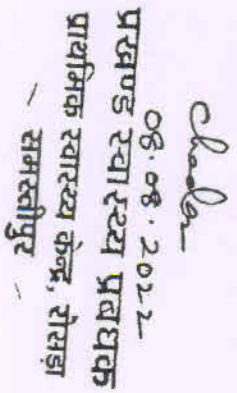 08.08.2022
प्रखण्ड स्वास्थ्य प्रबंधक
प्राथमिक स्वास्थ्य केन्द्र, रोसड़ा
- समस्तीपुर -